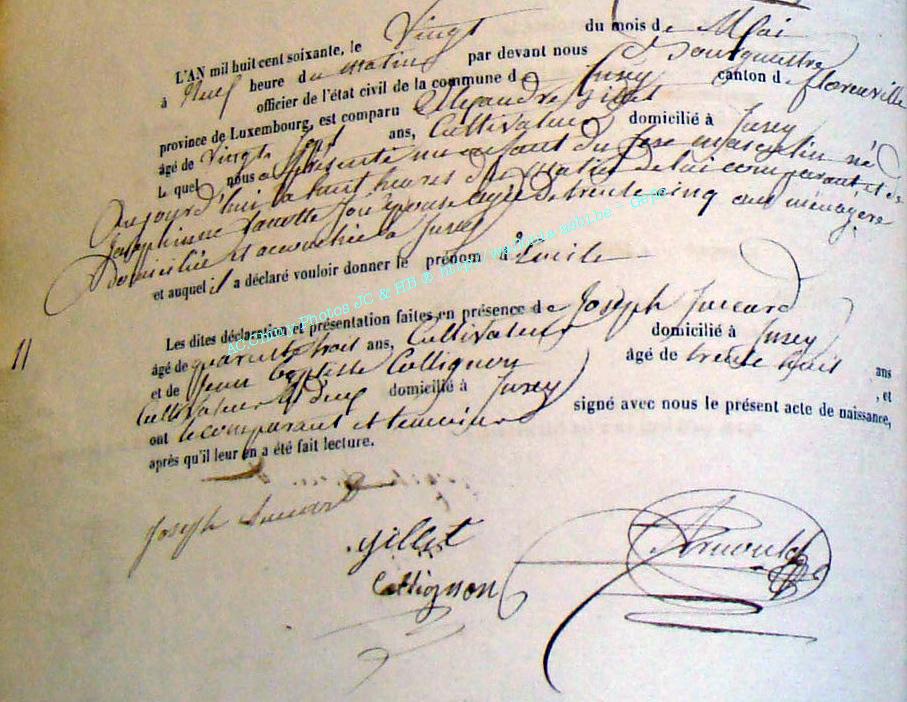 L'AN mil huit cent soixante, le Vingt du mois de Mai
à Neuf heure du matin par devant nous
officier de l'état civil de la commune de Jusey canton de florenville
province de Luxembourg, est comparu Alexandre Gillet
âgé de Vingt Sept ans, Cultivateur domicilié à Jusey
Le quel nous a présenté un enfant du sexe masculin né
Aujourd'hui à huit heures du matin de lui comparant et de
Josephinne son épouse agée de trente cinq ans ménagère
domiciliée et accouchée à Jusey
et auquel il a déclaré vouloir donner le prénom d'Emile
Les dites déclaration et présentation faites en présence de Joseph Sucard
âgé de quarante trois ans, Cultivateur domicilié à Jusey
et de Jean baptiste Collignon âgé de trente huit ans
Cultivateur domicilié à Jusey , et
ont le comparant et temoins signé avec nous le présent acte de naissance,
après qu'il leur en a été fait lecture.
11
Joseph Sucard
Gillet
Collignon
Arnould
ACChiny Photos JC & HB @ http://